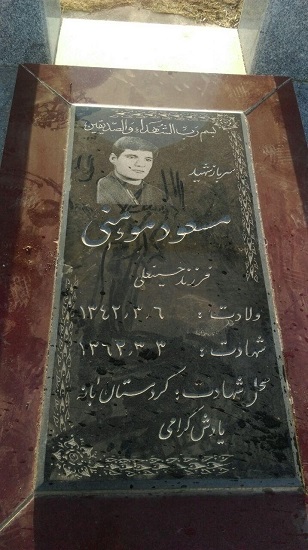 بسم رب الشهداء والصدیقین
سرباز شهید
مسعود مؤمنی
فرزند حسینعلی
ولادت : ۱۳۴۲٫۳٫۶
شهادت : ۱۳۶۲٫۳٫۳
محل شهادت : کردستان بانه
یادش گرامی